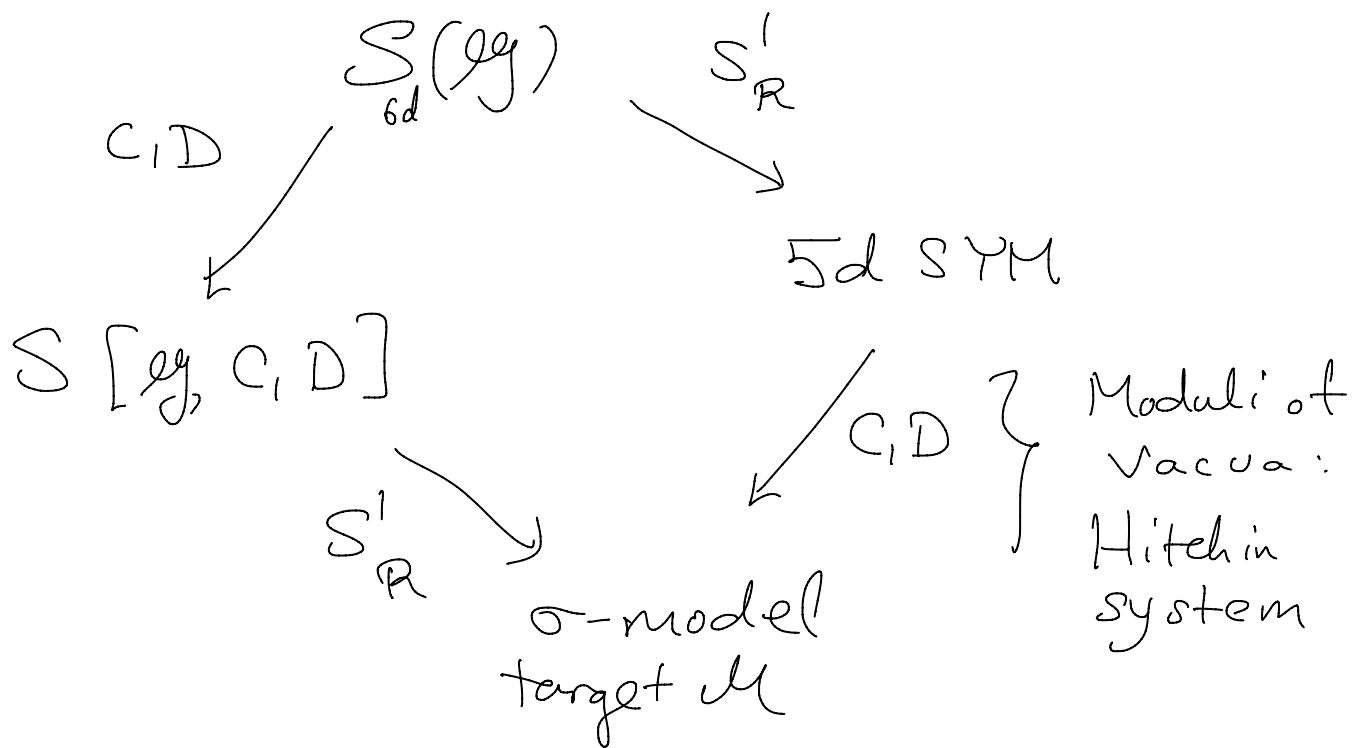 S_{6d}(𝔤)
S^1_R
C, D
5d SYM
S[𝔤, C, D]
C, D
Moduli of
vacua:
S^1_R
Hitchin
system
σ-model
target M